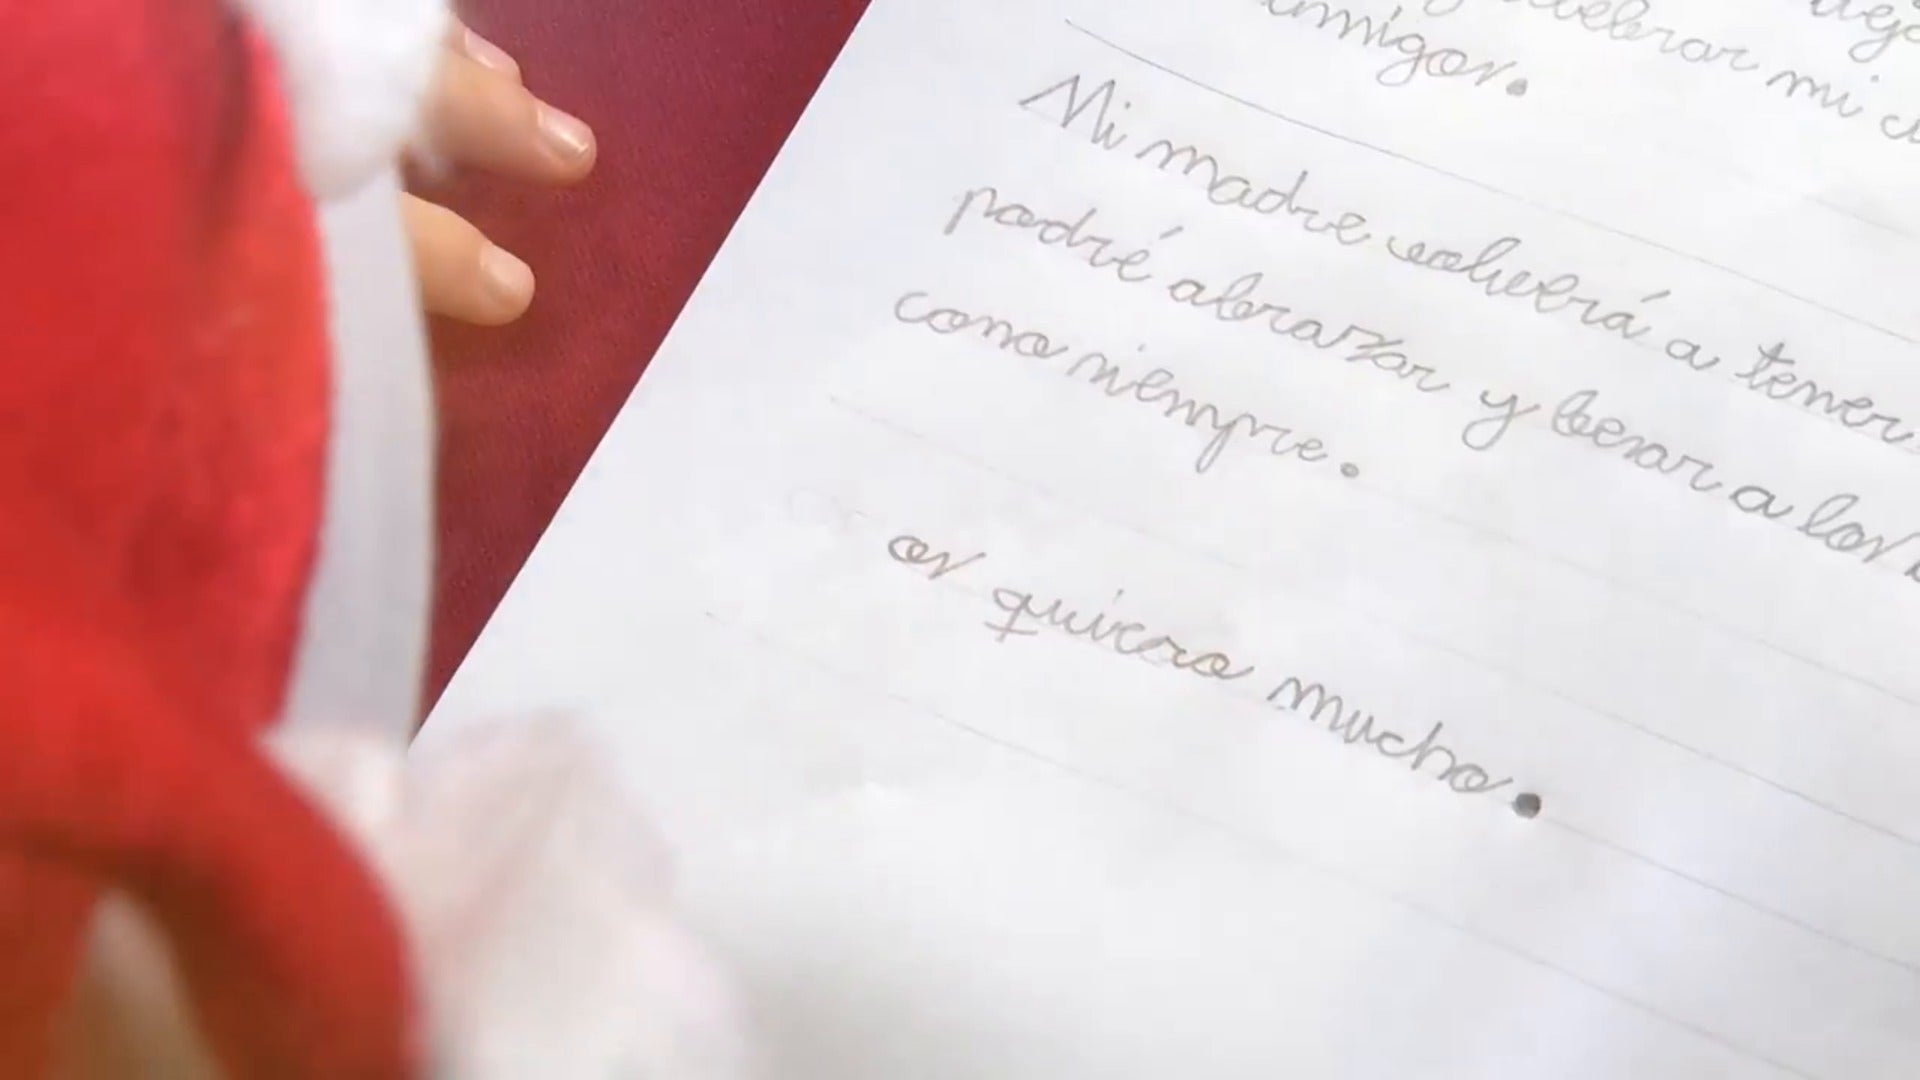 mi
amigos.
Mi madre volverá a tener
podré abrazar y besar a los
como siempre.
os quiero mucho.